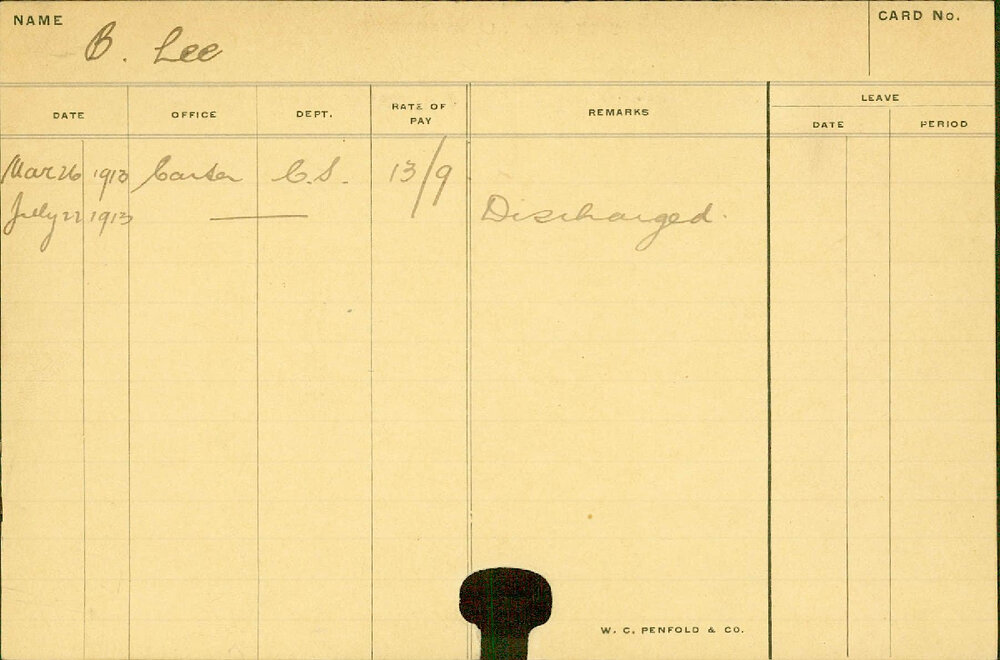 NAME
B. Lee
CARD No.
DATE OFFICE DEPT. RATE OF PAY REMARKS LEAVE
DATE PERIOD
Mar 26 1913 Carter C.S. 13/9
July 22 1913 —— Discharged.
W. C. PENFOLD & CO.